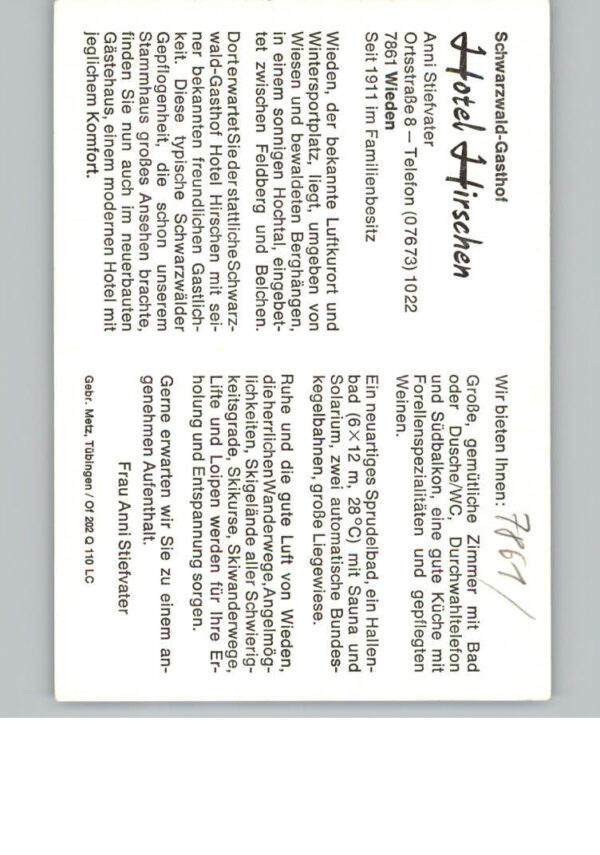 Schwarzwald-Gasthof
Hotel Hirschen
Anni Stiefvater
Ortsstraße 8 – Telefon (07673) 1022
7861 Wieden
Seit 1911 im Familienbesitz
Wieden, der bekannte Luftkurort und
Wintersportplatz, liegt, umgeben von
Wiesen und bewaldeten Berghängen,
in einem sonnigen Hochtal, eingebet-
tet zwischen Feldberg und Belchen.
Dort erwartet Sie der stattliche Schwarz-
wald-Gasthof Hotel Hirschen mit sei-
ner bekannten freundlichen Gastlich-
keit. Diese typische Schwarzwälder
Gepflogenheit, die schon unserem
Stammhaus großes Ansehen brachte,
finden Sie nun auch im neuerbauten
Gästehaus, einem modernen Hotel mit
jeglichem Komfort.
Wir bieten Ihnen: 7861/
Große, gemütliche Zimmer mit Bad
oder Dusche/WC, Durchwahltelefon
und Südbalkon, eine gute Küche mit
Forellenspezialitäten und gepflegten
Weinen.
Ein neuartiges Sprudelbad, ein Hallen-
bad (6 × 12 m, 28°C) mit Sauna und
Solarium, zwei automatische Bundes-
kegelbahnen, große Liegewiese.
Ruhe und die gute Luft von Wieden,
die herrlichen Wanderwege, Angelmög-
lichkeiten, Skigelände aller Schwierig-
keitsgrade, Skikurse, Skiwanderwege,
Lifte und Loipen werden für Ihre Er-
holung und Entspannung sorgen.
Gerne erwarten wir Sie zu einem an-
genehmen Aufenthalt.
Frau Anni Stiefvater
Gebr. Metz, Tübingen / Of 202 Q 110 LC